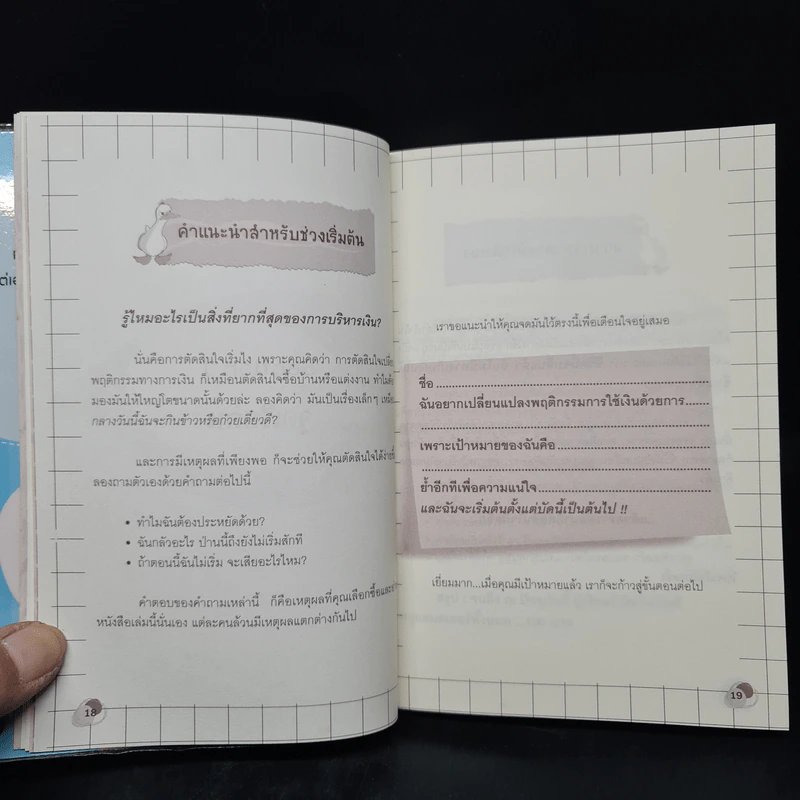 คำแนะนำสำหรับช่วงเริ่มต้น
รู้ไหมอะไรเป็นสิ่งที่ยากที่สุดของการบริหารเงิน?
นั่นคือการตัดสินใจเริ่มไง เพราะคุณคิดว่า การตัดสินใจ
พฤติกรรมทางการเงิน ก็เหมือนตัดสินใจซื้อบ้านหรือแต่งงาน ทำไม
มองมันให้ใหญ่โตขนาดนั้นด้วยล่ะ ลองคิดว่า มันเป็นเรื่องเล็กๆ
กลางวันนี้ฉันจะกินข้าวหรือก๋วยเตี๋ยวดี?
และการมีเหตุผลที่เพียงพอ ก็จะช่วยให้คุณตัดสินใจได้
ลองถามตัวเองด้วยคำถามต่อไปนี้
• ทำไมฉันต้องประหยัดด้วย?
• ฉันกลัวอะไร ป่านนี้ถึงยังไม่เริ่มสักที
• ถ้าตอนนี้ฉันไม่เริ่ม จะเสียอะไรไหม?
คำตอบของคำถามเหล่านี้ ก็คือเหตุผลที่คุณเลือกซื้อและ
หนังสือเล่มนี้นั่นเอง แต่ละคนล้วนมีเหตุผลแตกต่างกันไป
18
เราขอแนะนำให้คุณจดมันไว้ตรงนี้เพื่อเตือนใจอยู่เสมอ
ชื่อ..............................................................
ฉันอยากเปลี่ยนแปลงพฤติกรรมการใช้เงินด้วยการ......
..............................................................
เพราะเป้าหมายของฉันคือ..................................
..............................................................
ย้ำอีกทีเพื่อความแน่ใจ.....................................
และฉันจะเริ่มต้นตั้งแต่บัดนี้เป็นต้นไป !!
เยี่ยมมาก...เมื่อคุณมีเป้าหมายแล้ว เราก็จะก้าวสู่ขั้นตอนต่อไป
19